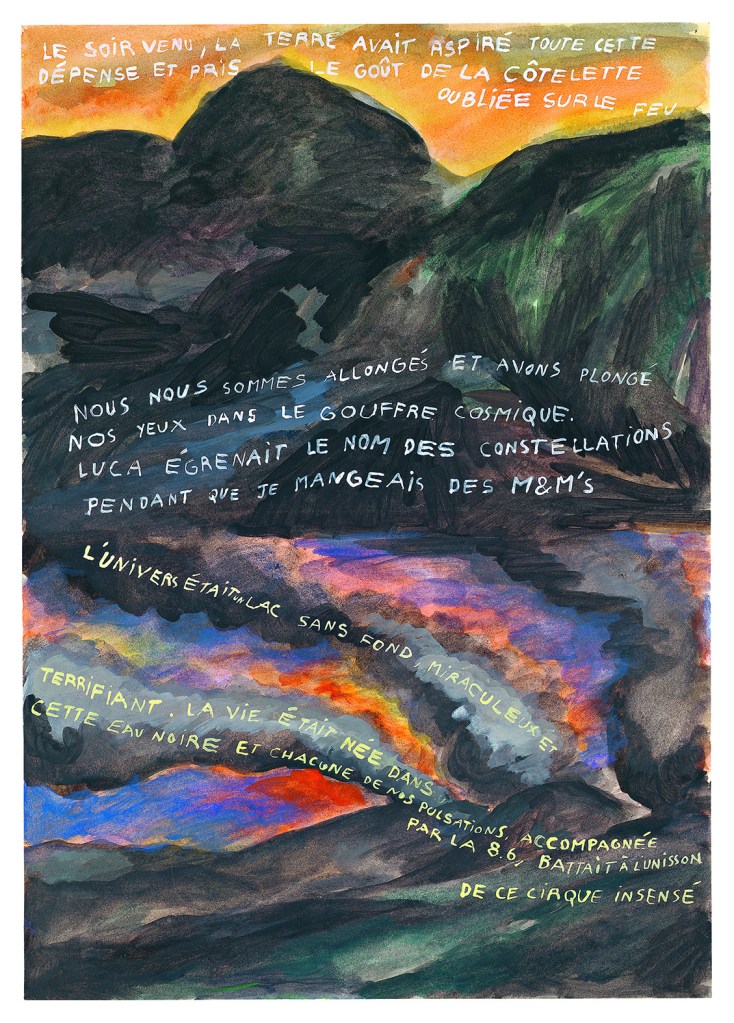 LE SOIR VENU, LA TERRE AVAIT ASPIRÉ TOUTE CETTE
DÉPENSE ET PRIS LE GOÛT DE LA CÔTELETTE
OUBLIÉE SUR LE FEU
NOUS NOUS SOMMES ALLONGÉS ET AVONS PLONGÉ
NOS YEUX DANS LE GOUFFRE COSMIQUE.
LUCA ÉGRENAIT LE NOM DES CONSTELLATIONS
PENDANT QUE JE MANGEAIS DES M&M'S
L'UNIVERS ÉTAIT UN LAC SANS FOND, MIRACULEUX ET
TERRIFIANT. LA VIE ÉTAIT NÉE DANS
CETTE EAU NOIRE ET CHACUNE DE NOS PULSATIONS, ACCOMPAGNÉE
PAR LA 8.6, BATTAIT À L'UNISSON
DE CE CIRQUE INSENSÉ